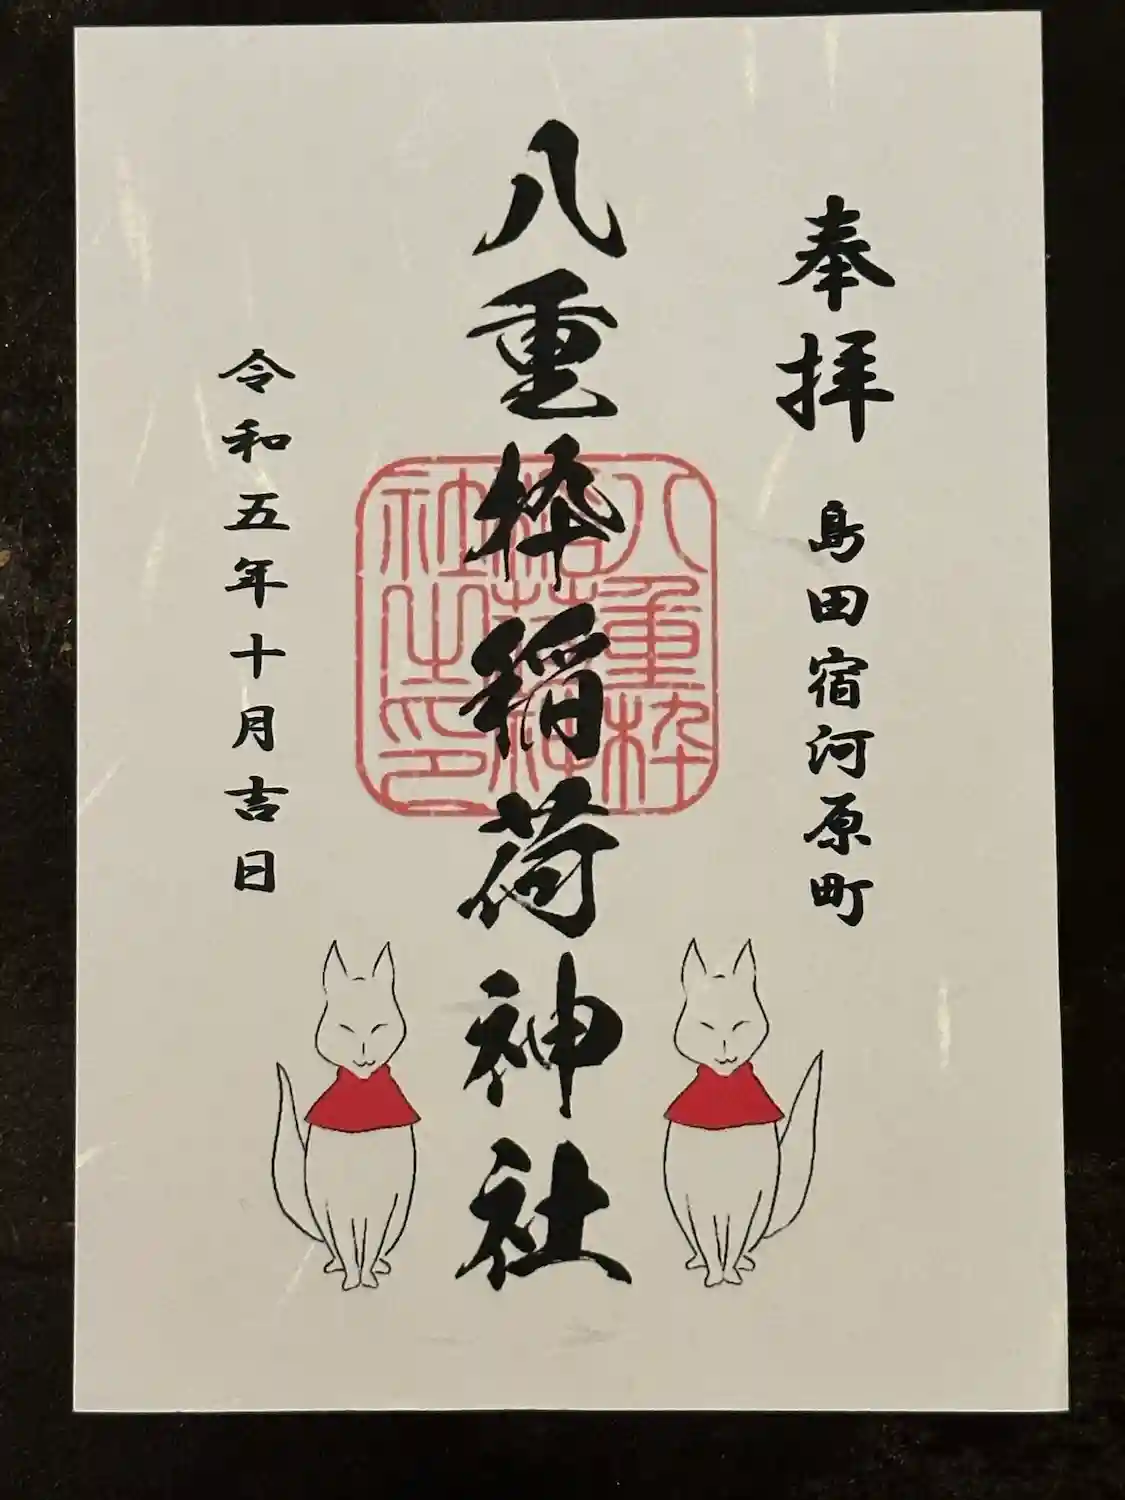 奉拝 島田宿河原町
八重枠稲荷神社
八重枠
稲荷神
社之印
令和五年十月吉日